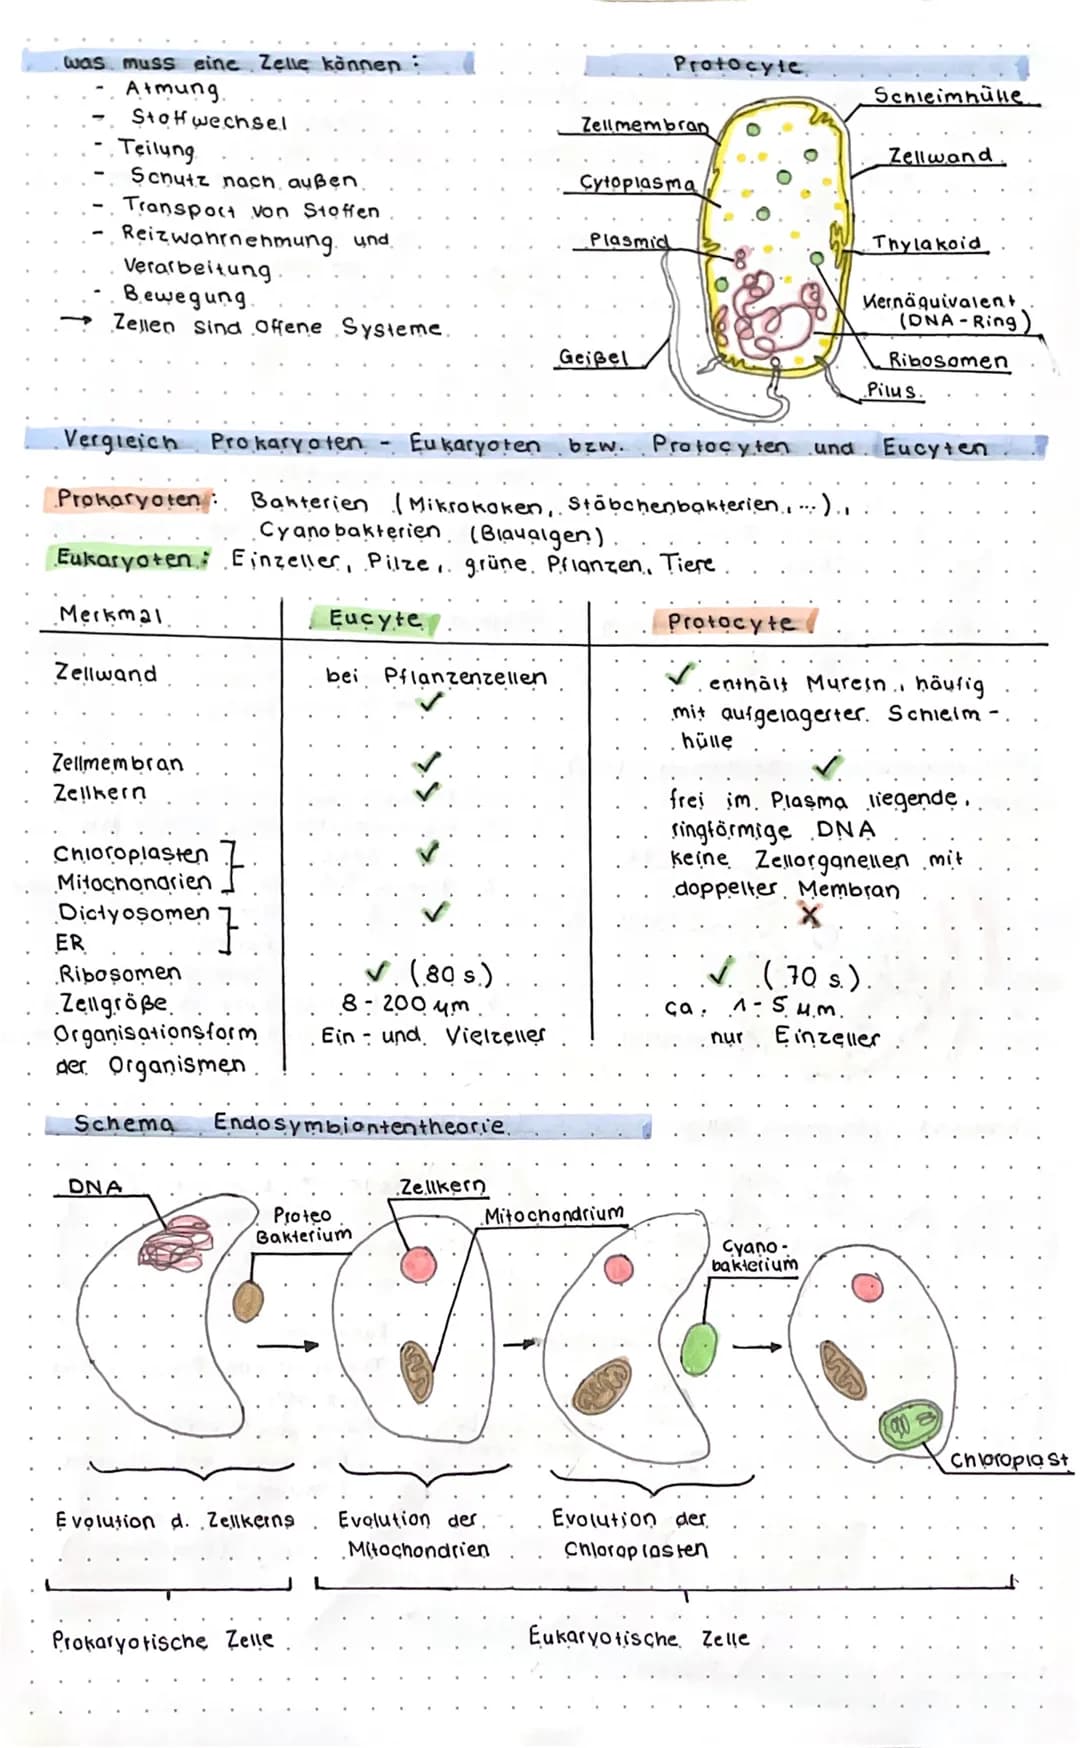 was muss eine Zelle können :
- Atmung
- Stoffwechsel
- Teilung
- Schutz nach außen
- Transport von Stoffen
- Reizwahrnehmung und
Verarbeitung
- Bewegung
→ Zellen sind offene Systeme
Protocyte
Schleimhülle
Zellmembran
Zellwand
Cytoplasma
Plasmid
Thylakoid
Kernäquivalent
(DNA-Ring)
Geißel
Ribosomen
Pilus
Vergleich Prokaryoten - Eukaryoten bzw. Protocyten und Eucyten
Prokaryoten: Bakterien (Mikrokoken, Stäbchenbakterien, ...),
Cyanobakterien (Blaualgen)
Eukaryoten: Einzeller, Pilze, grüne Pflanzen, Tiere
Merkmal Eucyte Protocyte
Zellwand bei Pflanzenzellen ✓ ✓ enthält Murein, häufig
mit aufgelagerter Schleim-
hülle
Zellmembran ✓ ✓
Zellkern ✓ frei im Plasma liegende,
ringförmige DNA
Chloroplasten ✓ keine Zellorganellen mit
Mitochondrien doppelter Membran
Dictyosomen ✓ X
ER
Ribosomen ✓ (80 s) ✓ (70 s)
Zellgröße 8-200 µm ca. 1-5 µm
Organisationsform Ein- und Vielzeller nur Einzeller
der Organismen
Schema Endosymbiontentheorie
DNA
Proteo
Bakterium
Zellkern
Mitochondrium
Cyano-
bakterium
Chloroplast
Evolution d. Zellkerns
Evolution der
Mitochondrien
Evolution der
Chloroplasten
Prokaryotische Zelle
Eukaryotische Zelle